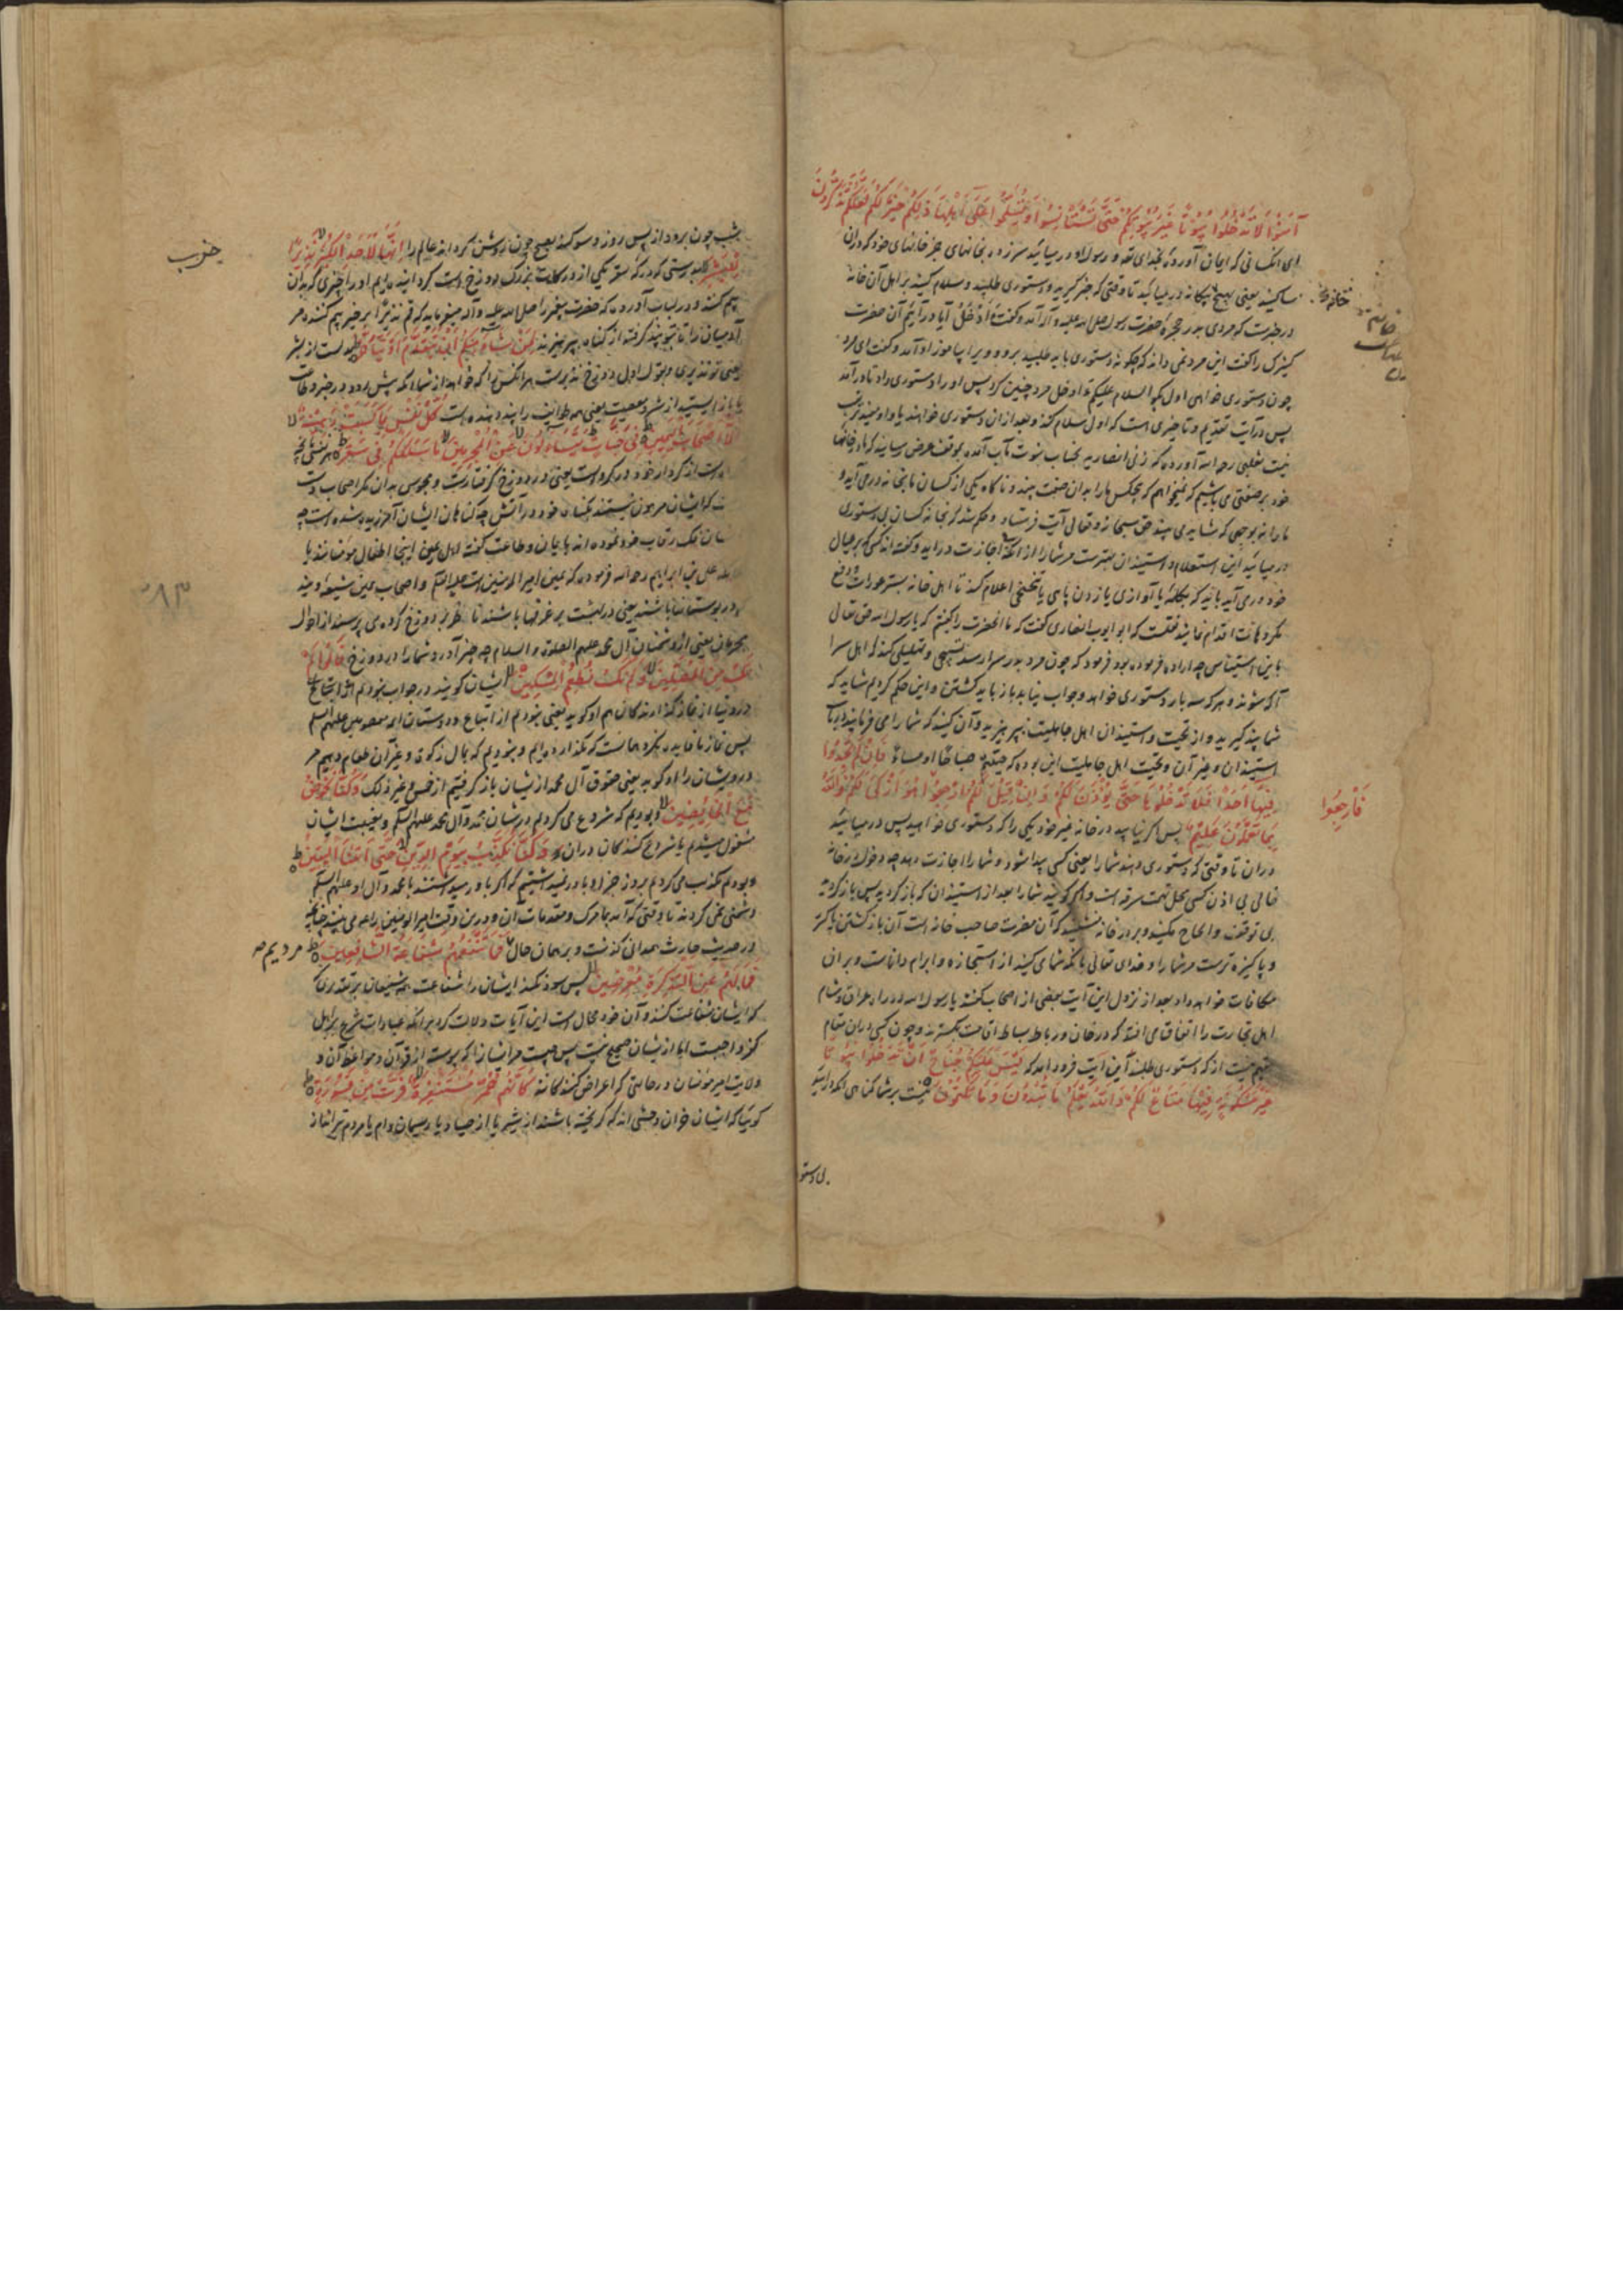 آمَنُوا لَا تَدْخُلُوا بُيُوتًا غَيْرَ بُيُوتِكُمْ حَتَّى تَسْتَأْنِسُوا وَتُسَلِّمُوا عَلَى أَهْلِهَا ذَلِكُمْ خَيْرٌ لَكُمْ لَعَلَّكُمْ تَذَكَّرُونَ
ای آنکسانی که ایمان آورده‌اند بخدای تع و رسول او در میائید سرزده بخانهای جز خانهای خود که در آن
ساکنید یعنی بهیچ بیکانه در میائید تا وقتی که خبر گیرید و دستوری طلبید و سلام کنید بر اهل آن خانه
در خبرست که مردی بدر حجره حضرت رسول صلی الله علیه و آله آمد و گفت أَأَدْخُلُ آیا در آیم آن حضرت
کنیزک را گفت این مرد نمی داند که چکونه دستوری باید طلبید برو و ویرا بیاموز او آمد و گفت ای مرد
چون دستوری خواهی اول بگو السلام علیکم ءادخل مرد چنین کرد پس او را دستوری داد تا در آمد
پس در آیت تقدیم و تاخیری است که اول سلام کند و بعد از آن دستوری خواهند
نیست ثعلبی رحمه الله آورده که زنی انصاریه بجناب نبوت مآب آمده بموقف عرض رسانید که ما در خانها
خود بر صفتی می باشیم که نمیخواهم که هیچکس ما را بدان صفت بیند و ناکاه یکی از کسان ما بخانه در می آید و
ما را نه بوجهی که شاید می بیند حق سبحانه و تعالی آیت فرستاد و حکم شد که بخانه کسان بی دستوری
در میائید این استعلام و استیذان بهترست مر شما را از آنکه بی اجازت در آیید و گفته اند کسی که بر عیال
خود در می آید باید که بکلمه یا آوازی یا زدن پای یا تنحنحی اعلام کند تا اهل خانه بستر عورات و دفع
مکروهات اقدام نمایند نقلست که ابو ایوب انصاری گفت که ما آنحضرت را گفتیم که یا رسول الله حق تعالی
باین استیناس چه اراده فرموده بود فرمود که چون مرد بدر سرا رسد تسبیحی و تهلیلی کند که اهل سرا
آگه شوند و هر که سه بار دستوری خواهد و جواب نیابد باز باید گشتن و این حکم کردیم شاید که
شما پند گیرید و از تحیت و استیذان اهل جاهلیت بپرهیزید و آن کنید که شما را می فرمایند در باب
استیذان و غیر آن و تحیت اهل جاهلیت این بوده که حییتم صباحًا او مساءً فَإِنْ لَمْ تَجِدُوا
فِيهَا أَحَدًا فَلَا تَدْخُلُوهَا حَتَّى يُؤْذَنَ لَكُمْ وَإِنْ قِيلَ لَكُمُ ارْجِعُوا هُوَ أَزْكَى لَكُمْ وَاللَّهُ
فَارْجِعُوا
بِمَا تَعْمَلُونَ عَلِيمٌ پس اگر نیابید در خانه غیر خود یکی را که دستوری خواهید پس در میائید
در آن تا وقتی که دستوری دهند شما را یعنی کسی پیدا شود و شما را اجازت دهد چه دخول در خانه
خالی بی اذن کسی محل تهمت سرقه است و اگر گویند شما را بعد از استیذان که باز گردید پس باز گردید
بی توقف و الحاح مکنید و بر در خانه منشینید که آن مضرت صاحب خانه است آن بازگشتن پاکتر
و پاکیزه ترست مر شما را و خدای تعالی بآنکه شما می کنید از استجازه و ابرام داناست و بر آن
مکافات خواهد داد بعد از نزول این آیت بعضی از اصحاب گفتند یا رسول الله در راه عراق و شام
اهل تجارت را اتفاق می افتد که در خان و رباط بساط اقامت بگسترند و چون کسی در آن مقام
مقیم نیست از که دستوری طلبند این آیت فرود آمد که لَيْسَ عَلَيْكُمْ جُنَاحٌ أَنْ تَدْخُلُوا بُيُوتًا
غَيْرَ مَسْكُونَةٍ فِيهَا مَتَاعٌ لَكُمْ وَاللَّهُ يَعْلَمُ مَا تُبْدُونَ وَمَا تَكْتُمُونَ نیست بر شما گناهی آنکه در آیید
بی دستو
شب چون برود از پس روز و سوگند بصبح چون روشن گرداند عالم را إِنَّهَا لَإِحْدَى الْكُبَرِ نَذِيرًا
لِلْبَشَرِ بدرستی که درکه سقر یکی از درکات بزرگ دوزخ است گردانیده‌ایم او را چیزی که بدان
بیم کنند و در لباب آورده که حضرت پیغمبر را صلی الله علیه و آله میفرماید که قم نذیرًا برخیز بیم کننده مر
آدمیان را تا بتو پند گرفته از گناه بپرهیزند لِمَنْ شَاءَ مِنْكُمْ أَنْ يَتَقَدَّمَ أَوْ يَتَأَخَّرَ بدلست از بشر
یعنی تو نذیری و بقول اول دوزخ نذیرست هر آنکس را که خواهد از شما آنکه پیش رود در خیر و طاعت
یا باز ایستد از شر و معصیت یعنی همه طوایف را پند دهنده است كُلُّ نَفْسٍ بِمَا كَسَبَتْ رَهِينَةٌ
إِلَّا أَصْحَابَ الْيَمِينِ فِي جَنَّاتٍ يَتَسَاءَلُونَ عَنِ الْمُجْرِمِينَ مَا سَلَكَكُمْ فِي سَقَرَ هر نفسی بآنچه
کرده است از کردار خود در گروست یعنی در دوزخ گرفتارست و محبوس بدان مگر اصحاب دست
راست که ایشان مرهون نیستند بگناه خود در آتش چه گناهان ایشان آمرزیده شده است چه
ایشان فک رقاب خود نموده اند بایمان و طاعت گفته اهل یمین اینجا اطفال مؤمنانند یا
ملائکه علی بن ابراهیم رحمه الله فرموده که یمین امیر المومنین است علیه السلام و اصحاب یمین شیعه وی‌اند
در بوستانها باشند یعنی در بهشت بر غرفها باشند تا نظر بر دوزخ کرده می پرسند از احوال
مجرمان یعنی از دشمنان آل محمد علیهم الصلوة و السلام چه چیز آورد شما را در دوزخ قَالُوا لَمْ
نَكُ مِنَ الْمُصَلِّينَ وَلَمْ نَكُ نُطْعِمُ الْمِسْكِينَ ایشان گویند در جواب نبودیم ما
در دنیا از نماز گزارندگان امام او گوید یعنی نبودیم از اتباع و دوستان ایمه معصومین علیهم السلم
پس نماز ما فایده نکرد همانست که نگذارده‌ایم و نبودیم که بمال زکوة و غیر آن طعام دهیم مر
درویشان را او گوید یعنی حقوق آل محمد از ایشان باز گرفتیم از خمس و غیر ذلک وَكُنَّا نَخُوضُ
مَعَ الْخَائِضِينَ و بودیم که شروع می کردیم در شان محمد و آل محمد علیهم السلم و بغیبت ایشان
مشغول میشدیم با شروع کنندگان در آن وَكُنَّا نُكَذِّبُ بِيَوْمِ الدِّينِ حَتَّى أَتَانَا الْيَقِينُ
و بودیم تکذیب می کردیم بروز جزا و باور نمیداشتیم که اگر باور میداشتند با محمد و آل او علیهم السلم
دشمنی نمی کردند تا وقتی که آمد بما مرگ و مقدمات آن و درین وقت امیر المومنین را می بینند چنانچه
در حدیث حارث همدانی گذشت و بر همان حال فَمَا تَنْفَعُهُمْ شَفَاعَةُ الشَّافِعِينَ
مردیم صه
فَمَا لَهُمْ عَنِ التَّذْكِرَةِ مُعْرِضِينَ پس سود نکند ایشان را شفاعت همه شفیعان بر تقدیری که
که ایشان شفاعت کنند و آن خود محال است این آیات دلالت کرد بر آنکه عبادات شرع بر اهل
کفر واجبست اما از ایشان صحیح نیست پس چیست مر ایشان را که پیوسته از قرآن و مواعظ آن و
ولایت امیر مؤمنان در حالتی که اعراض کنندگانند كَأَنَّهُمْ حُمُرٌ مُسْتَنْفِرَةٌ فَرَّتْ مِنْ قَسْوَرَةٍ
گوئیا که ایشان خران وحشی اند که گریخته باشند از شیر یا از صیاد یا ریسمان دام یا مردم تیر انداز